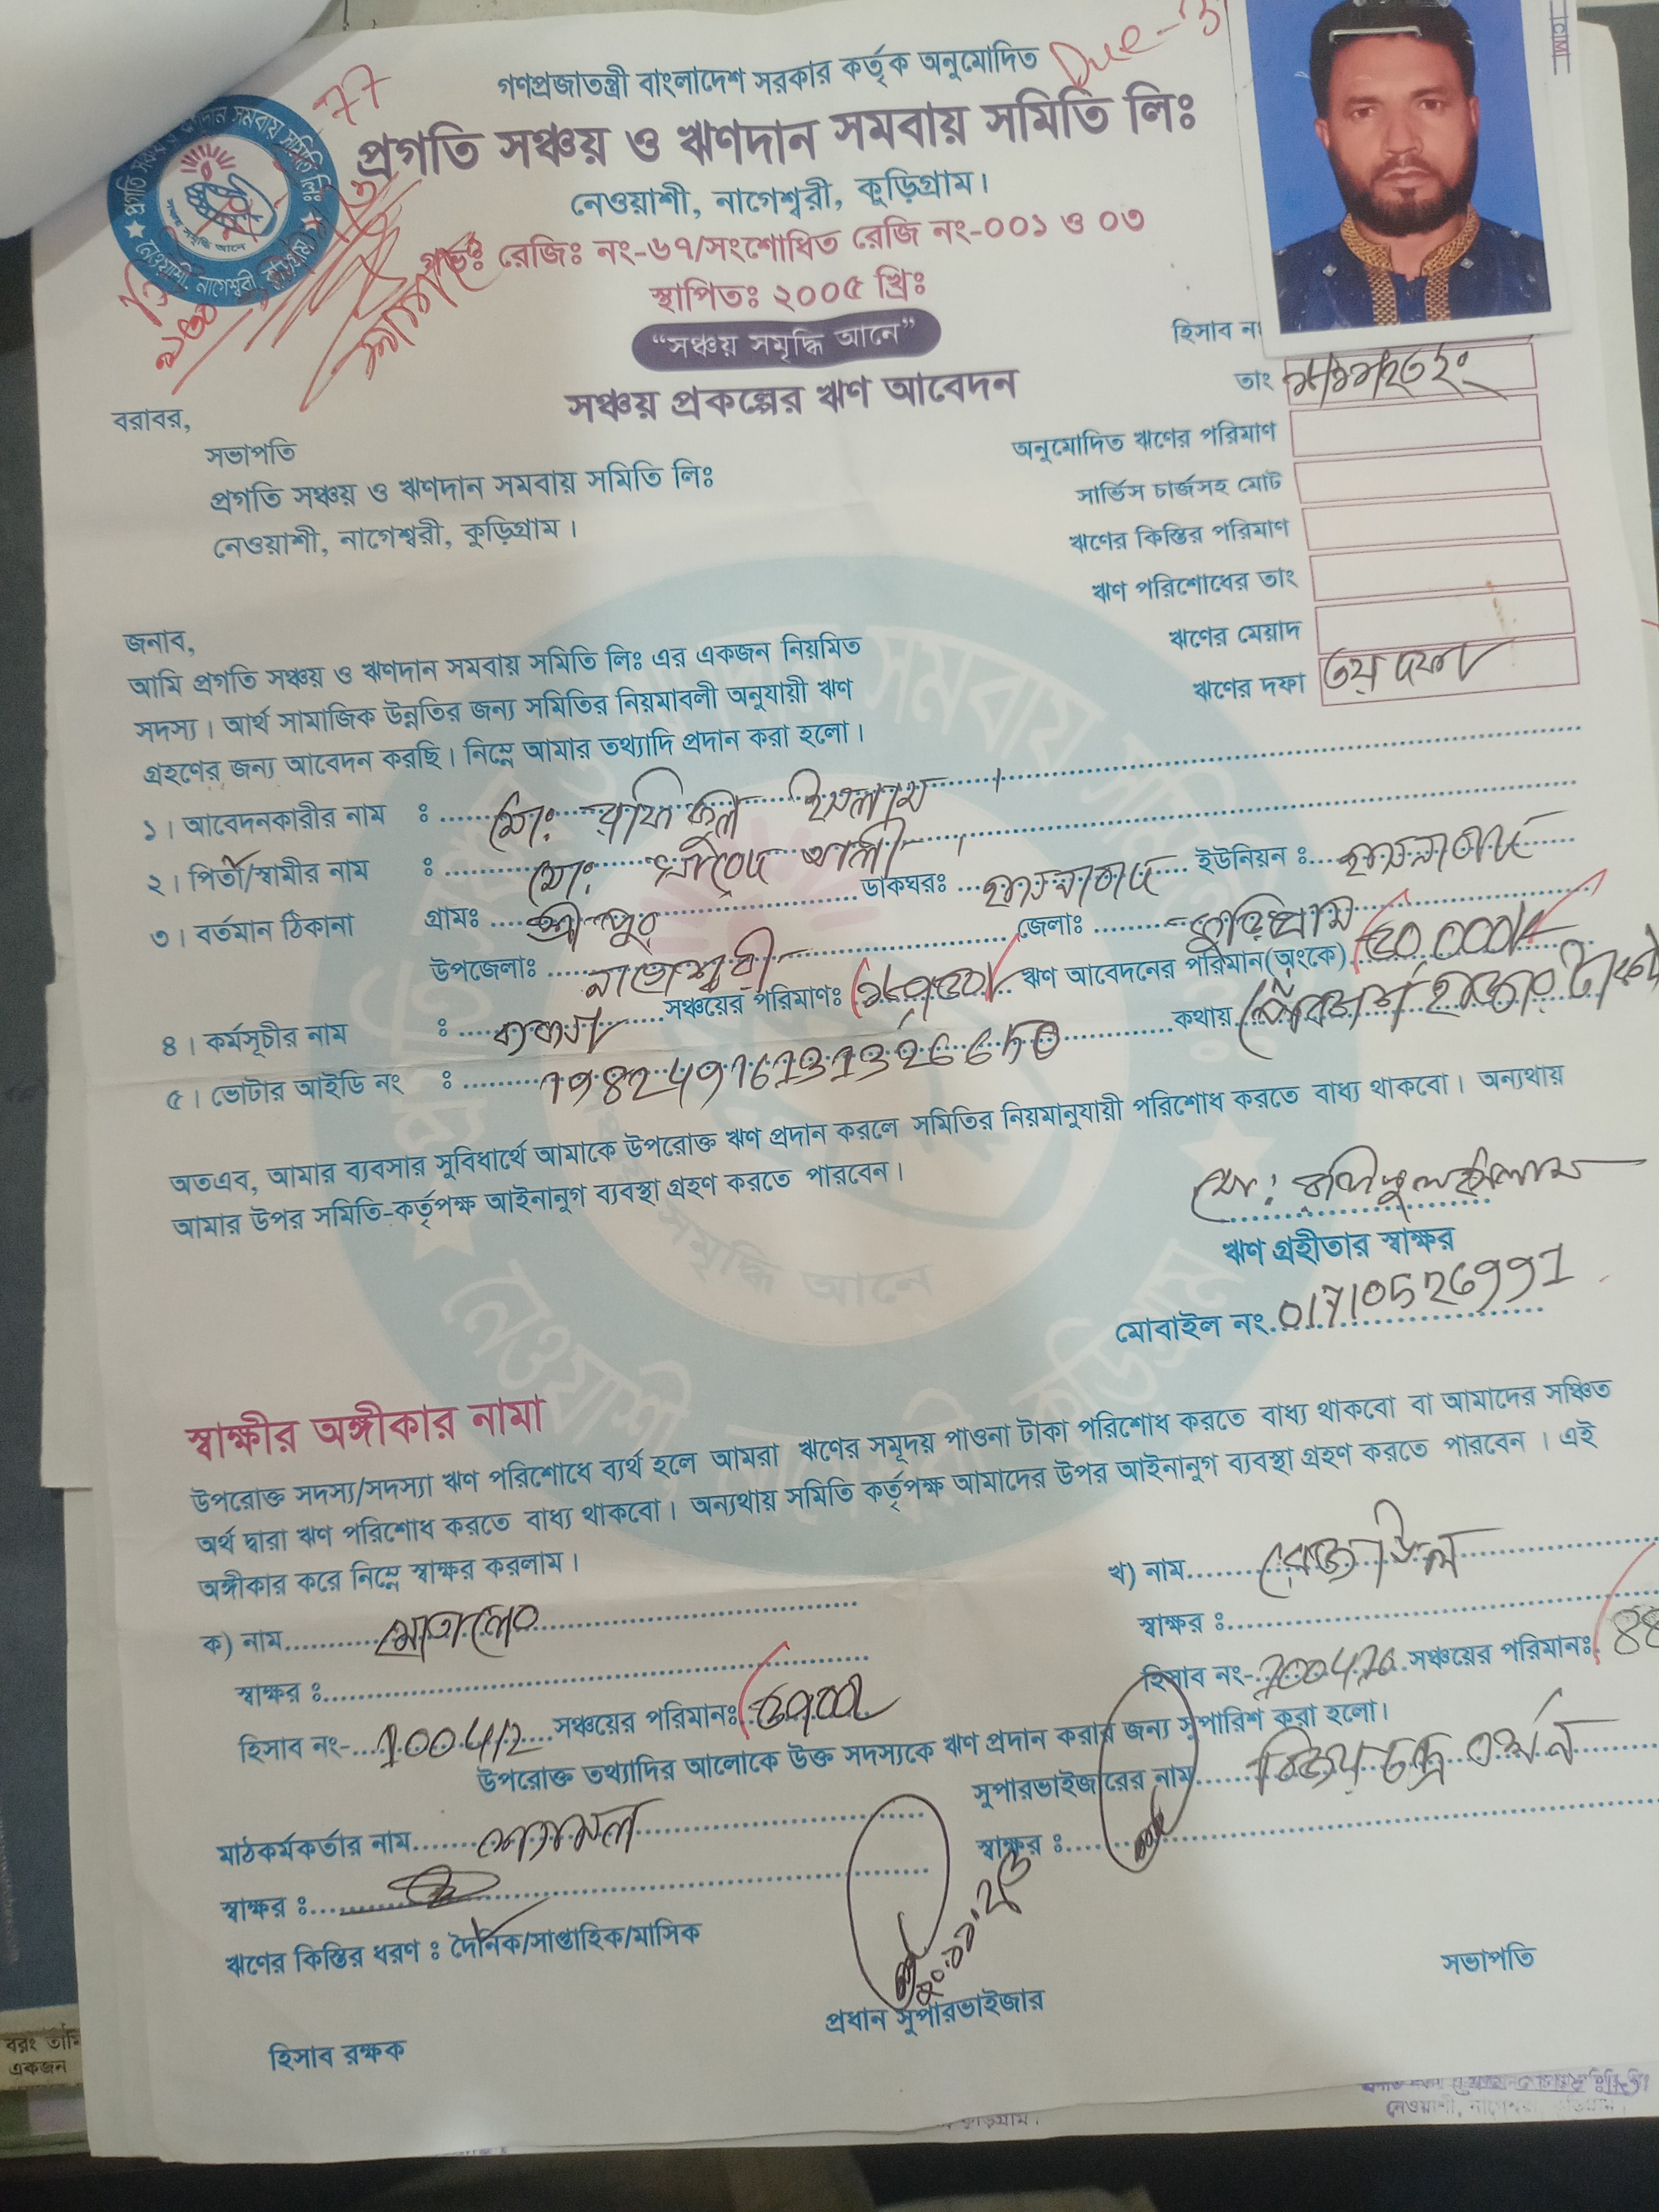 গণপ্রজাতন্ত্রী বাংলাদেশ সরকার কর্তৃক অনুমোদিত
Due-
77
প্রগতি সঞ্চয় ও ঋণদান সমবায় সমিতি লিঃ
নেওয়াশী, নাগেশ্বরী, কুড়িগ্রাম।
গভঃ রেজিঃ নং-৬৭/সংশোধিত রেজি নং-০০১ ও ০৩
স্থাপিতঃ ২০০৫ খ্রিঃ
“সঞ্চয় সমৃদ্ধি আনে”
সঞ্চয় প্রকল্পের ঋণ আবেদন
হিসাব নং
তাং
অনুমোদিত ঋণের পরিমাণ
সার্ভিস চার্জসহ মোট
ঋণের কিস্তির পরিমাণ
ঋণ পরিশোধের তাং
ঋণের মেয়াদ
ঋণের দফা ৩য় দফা
বরাবর,
সভাপতি
প্রগতি সঞ্চয় ও ঋণদান সমবায় সমিতি লিঃ
নেওয়াশী, নাগেশ্বরী, কুড়িগ্রাম।
জনাব,
আমি প্রগতি সঞ্চয় ও ঋণদান সমবায় সমিতি লিঃ এর একজন নিয়মিত
সদস্য। আর্থ সামাজিক উন্নতির জন্য সমিতির নিয়মাবলী অনুযায়ী ঋণ
গ্রহণের জন্য আবেদন করছি। নিম্নে আমার তথ্যাদি প্রদান করা হলো।
১। আবেদনকারীর নাম : মোঃ রফিকুল ইসলাম
২। পিতা/স্বামীর নাম : মোঃ আলী
৩। বর্তমান ঠিকানা গ্রামঃ শ্রীপুর ডাকঘরঃ হাসনাবাদ ইউনিয়ন : হাসনাবাদ
উপজেলাঃ নাগেশ্বরী জেলাঃ কুড়িগ্রাম
৪। কর্মসূচীর নাম : ব্যবসা সঞ্চয়ের পরিমাণঃ ঋণ আবেদনের পরিমান(অংকে) ৫০,০০০/
৫। ভোটার আইডি নং : 19824916131326650 কথায় পঞ্চাশ হাজার টাকা
অতএব, আমার ব্যবসার সুবিধার্থে আমাকে উপরোক্ত ঋণ প্রদান করলে সমিতির নিয়মানুযায়ী পরিশোধ করতে বাধ্য থাকবো। অন্যথায়
আমার উপর সমিতি-কর্তৃপক্ষ আইনানুগ ব্যবস্থা গ্রহণ করতে পারবেন।
মোঃ রফিকুল ইসলাম
ঋণ গ্রহীতার স্বাক্ষর
মোবাইল নং 01710526991
স্বাক্ষীর অঙ্গীকার নামা
উপরোক্ত সদস্য/সদস্যা ঋণ পরিশোধে ব্যর্থ হলে আমরা ঋণের সমূদয় পাওনা টাকা পরিশোধ করতে বাধ্য থাকবো বা আমাদের সঞ্চিত
অর্থ দ্বারা ঋণ পরিশোধ করতে বাধ্য থাকবো। অন্যথায় সমিতি কর্তৃপক্ষ আমাদের উপর আইনানুগ ব্যবস্থা গ্রহণ করতে পারবেন। এই
অঙ্গীকার করে নিম্নে স্বাক্ষর করলাম।
ক) নাম
খ) নাম
স্বাক্ষর :
স্বাক্ষর :
হিসাব নং- 100412 সঞ্চয়ের পরিমানঃ
হিসাব নং- সঞ্চয়ের পরিমানঃ
উপরোক্ত তথ্যাদির আলোকে উক্ত সদস্যকে ঋণ প্রদান করার জন্য সুপারিশ করা হলো।
মাঠকর্মকর্তার নাম শ্যামল
সুপারভাইজারের নাম বিজয় চন্দ্র বর্মন
স্বাক্ষর :
স্বাক্ষর :
ঋণের কিস্তির ধরণ : দৈনিক/সাপ্তাহিক/মাসিক
হিসাব রক্ষক
প্রধান সুপারভাইজার
সভাপতি
বরং
একজন